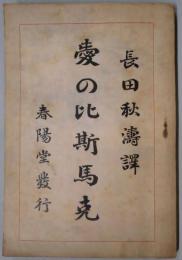 長田秋濤譯
愛の比斯馬克
春陽堂發行